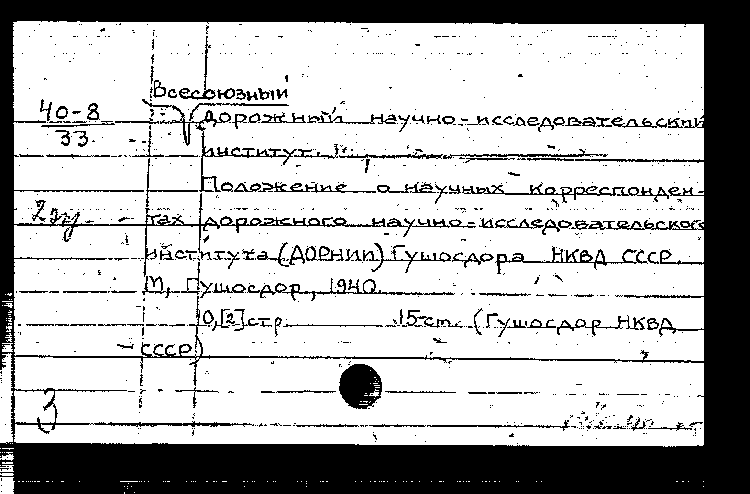 Всесоюзный
40-8
33
дорожный научно-исследовательский
институт.
Положение о научных корреспонден-
2 эу - тах дорожного научно-исследовательского
института (ДОРНИИ) Гушосдора НКВД СССР.
М, Гушосдор, 1940.
10,[2] стр. 15 ст. (Гушосдор НКВД
СССР)
3